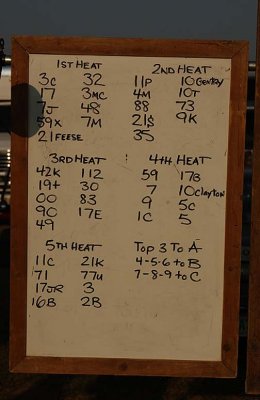 1ST HEAT
3C 32
17 3MC
7J 48
59X 7M
21 FEESE
2ND HEAT
11P 10 GENTRY
4M 10T
88 73
21$ 9K
35
3RD HEAT
42K 112
19+ 30
00 83
90 17E
49
4TH HEAT
59 17B
7 10 Clayton
9 5C
1C 5
5TH HEAT
11C 21K
71 77U
17JR 3
16B 2B
TOP 3 TO A
4-5-6 to B
7-8-9 to C